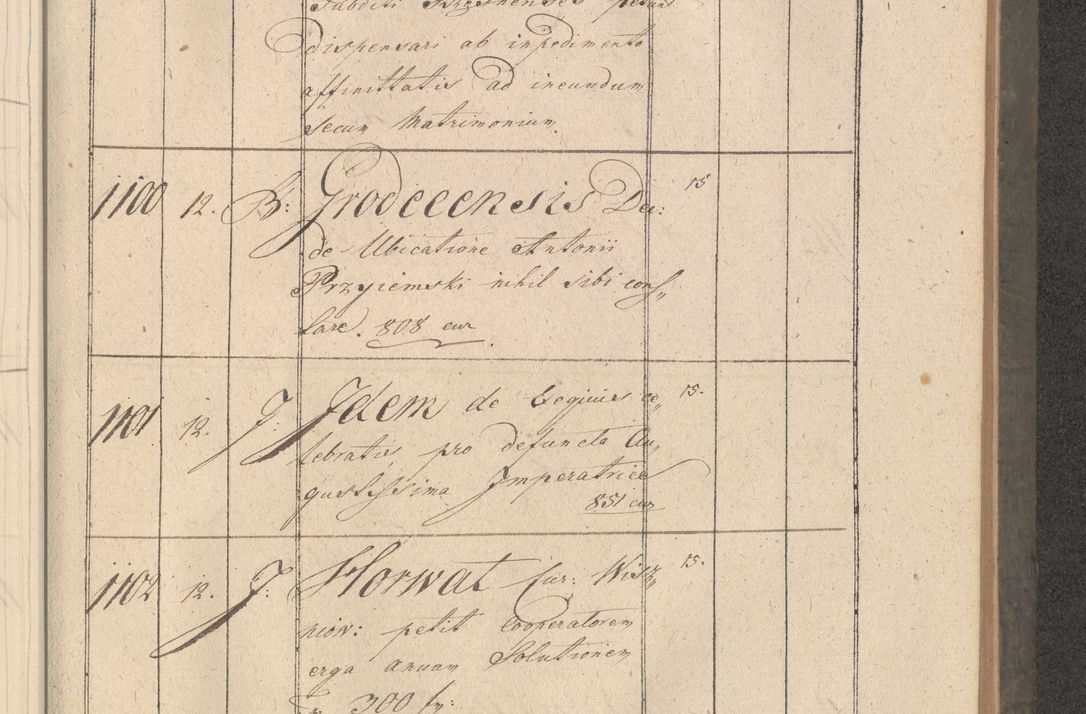 Subditi petunt
dispensari ab inpedimento
affinittatis ad ineundum
secum Matrimonium.
1100 12. B: Grodecensis Dec: 15
de Ubicatione Antonii
Przyiemski nihil sibi cons„
tare. 808 cur
1101 12. J: Idem de Exequiis ce„ 15.
lebratis pro defuncta Au„
gustissima Imperatrice
851 cur
1102 12. J: Horwat Cur: Wisz„ 15.
niow: petit Cooperatorem
erga anuam Solutionem
300 fr: